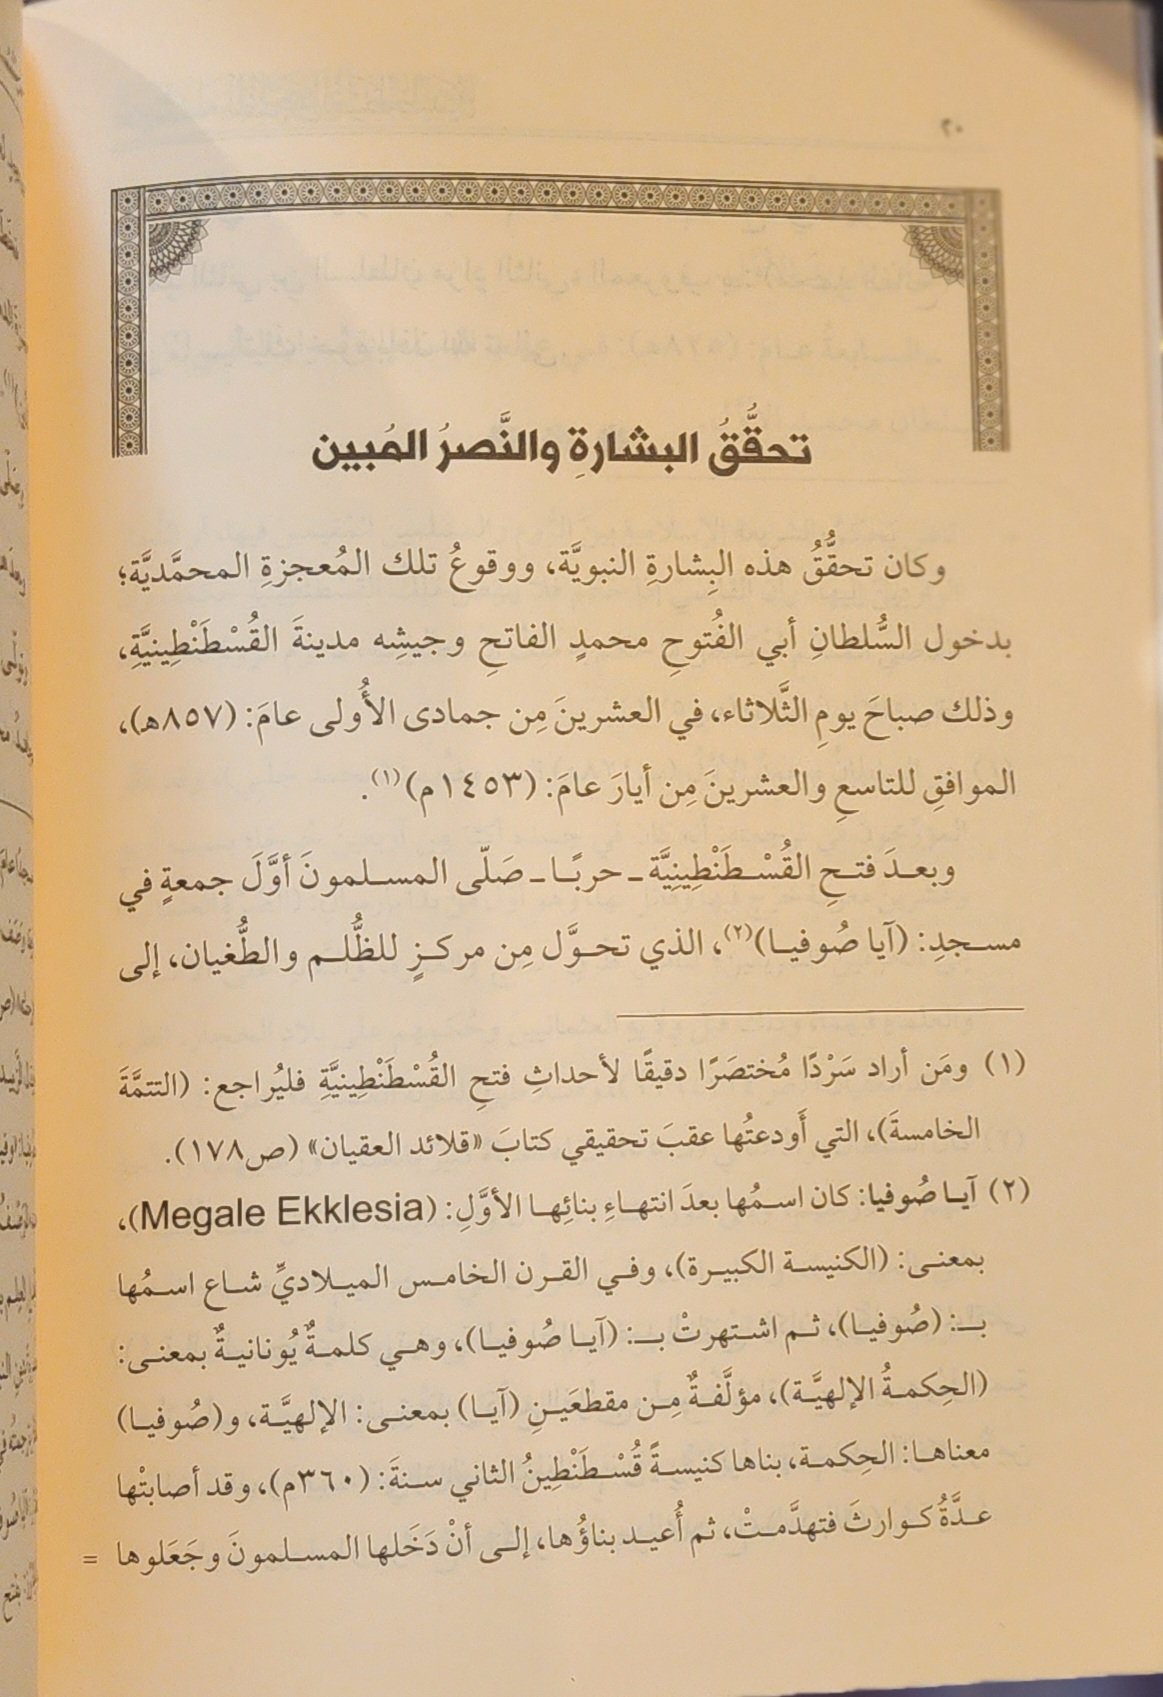 ٢٠
تحقُّقُ البشارةِ والنَّصرُ المُبين
وكان تحقُّقُ هذه البِشارةِ النبويَّة، ووقوعُ تلك المُعجزةِ المحمَّديَّة؛
بدخول السُّلطانِ أبي الفُتوحِ محمدٍ الفاتحِ وجيشِه مدينةَ القُسْطَنْطِينيَّةِ،
وذلك صباحَ يومِ الثَّلاثاء، في العشرينَ مِن جمادى الأُولى عامَ: (٨٥٧هـ)،
الموافقِ للتاسعِ والعشرينَ مِن أيارَ عامَ: (١٤٥٣م)(١).
وبعدَ فتحِ القُسْطَنْطِينِيَّة ـ حربًا ـ صَلّى المسلمونَ أوَّلَ جمعةٍ في
مسجدِ: (آيا صُوفيا)(٢)، الذي تحوَّل مِن مركزٍ للظُّلم والطُّغيان، إلى
(١) ومَن أراد سَرْدًا مُختصَرًا دقيقًا لأحداثِ فتحِ القُسْطَنْطِينيَّةِ فليُراجع: (التتمَّةَ
الخامسةَ)، التي أَودعتُها عقبَ تحقيقي كتابَ «قلائد العقيان» (ص١٧٨).
(٢) آيا صُوفيا: كان اسمُها بعدَ انتهاءِ بنائِها الأوَّلِ: (Megale Ekklesia)،
بمعنى: (الكنيسة الكبيرة)، وفي القرن الخامس الميلاديِّ شاع اسمُها
بـ: (صُوفيا)، ثم اشتهرتْ بـ: (آيا صُوفيا)، وهي كلمةٌ يُونانيةٌ بمعنى:
(الحِكمةُ الإلهيَّة)، مؤلَّفةٌ مِن مقطعَينِ (آيا) بمعنى: الإلهيَّة، و(صُوفيا)
معناها: الحِكمة، بناها كنيسةً قُسْطَنْطِينُ الثاني سنةَ: (٣٦٠م)، وقد أصابتْها
عدَّةُ كوارثَ فتهدَّمتْ، ثم أُعيد بناؤُها، إلى أنْ دَخَلها المسلمونَ وجَعَلوها =